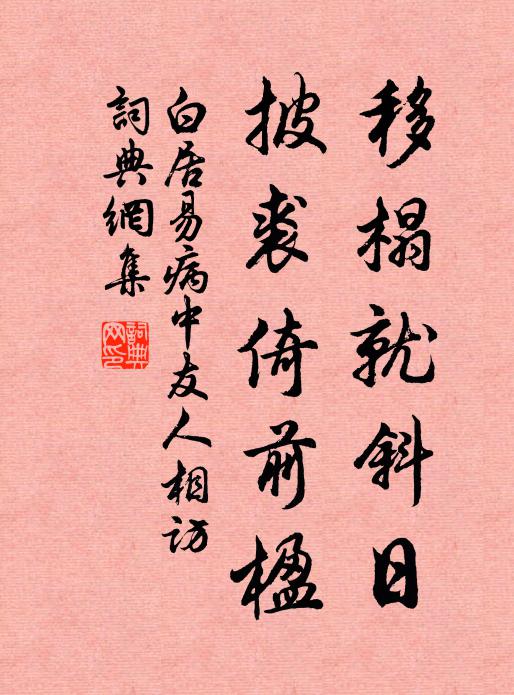 移榻就斜日
披裘倚前楹
白居易病中友人相訪
詞典網集
詞典网印